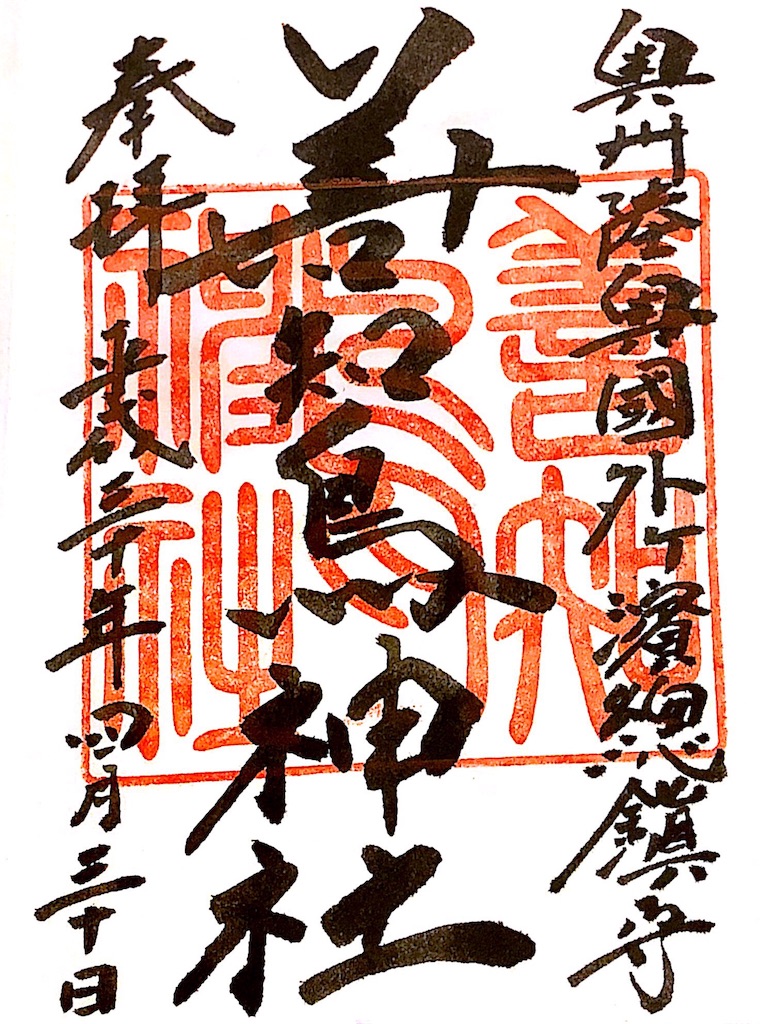 奥州陸奥國外ヶ濱總鎮守
善知鳥神社
奉拝
平成三十年四月三十日
善知鳥神社